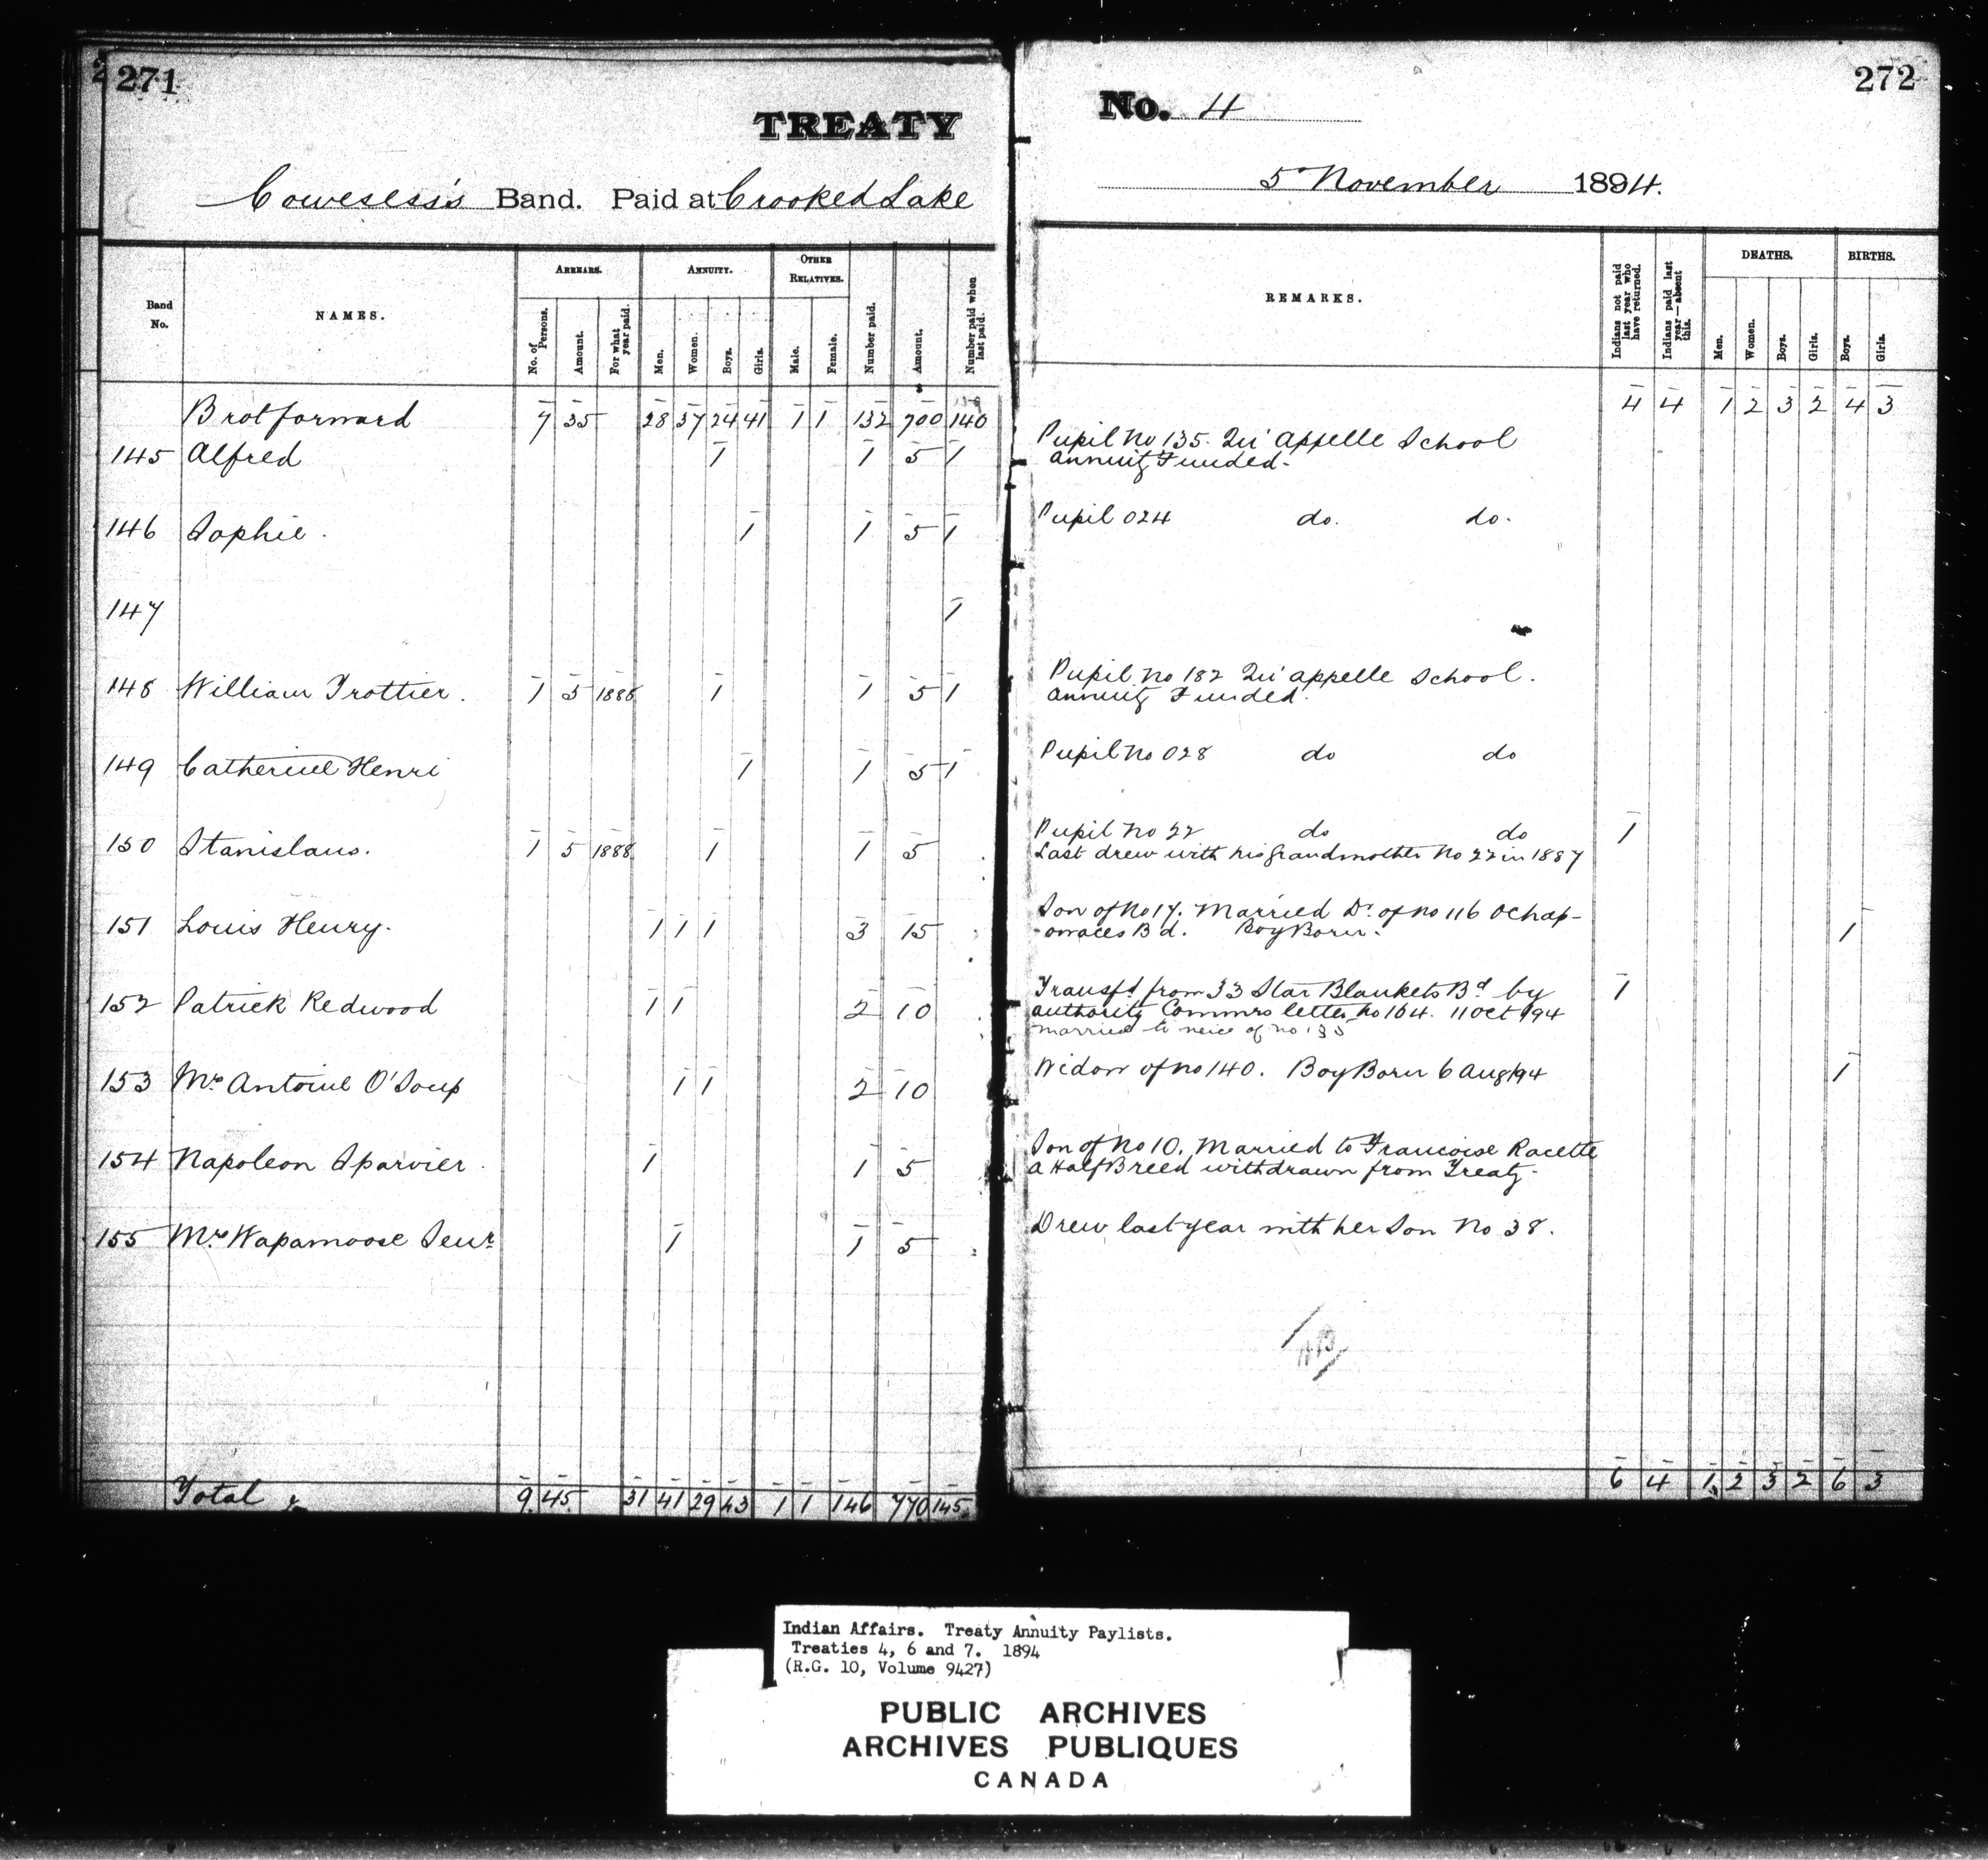 271
TREATY
Cowesess's Band. Paid at Crooked Lake
No. 4
272
5 November 1894.
Band No.
NAMES.
ARREARS.
No. of Persons.
Amount.
For what year paid.
ANNUITY.
Men.
Women.
Boys.
Girls.
OTHER RELATIVES.
Male.
Female.
Number paid.
Amount.
Number paid when last paid.
REMARKS.
Indians not paid last year who have returned.
Indians paid last year—absent this.
DEATHS.
Men.
Women.
Boys.
Girls.
BIRTHS.
Boys.
Girls.
Brot forward 7 35 28 37 24 41 1 1 132 700 140 4 4 1 2 3 2 4 3
145 Alfred 1 1 5 1 Pupil No 135. Qu'appelle School
annuity Funded.
146 Sophie. 1 1 5 1 Pupil 024 do. do.
147 1
148 William Trottier. 1 5 1888 1 1 5 1 Pupil No 182 Qu'appelle School.
annuity Funded.
149 Catherine Henri 1 1 5 1 Pupil No 028 do do
150 Stanislaus. 1 5 1888 1 1 5 Pupil No 22 do do 1
Last drew with his Grandmother No 22 in 1887
151 Louis Henry. 1 1 1 3 15 Son of No 17. Married Dr. of no 116 Ochap-
owaces Bd. Boy Born. 1
152 Patrick Redwood 1 1 2 10 Transfd from 33 Star Blankets Bd by 1
authority Commrs letter no 164. 11 Oct /94
married to neice of no 135
153 Mrs Antoine O'Soup 1 1 2 10 Widow of no 140. Boy Born 6 Aug /94 1
154 Napoleon Sparvier. 1 1 5 Son of No 10. Married to Francoise Racette
a Half Breed withdrawn from Treaty.
155 Mrs Wapamoose Senr 1 1 5 Drew last year with her Son No 38.
Total 9 45 31 41 29 43 1 1 146 770 145 6 4 1 2 3 2 6 3
Indian Affairs. Treaty Annuity Paylists.
Treaties 4, 6 and 7. 1894
(R.G. 10, Volume 9427)
PUBLIC ARCHIVES
ARCHIVES PUBLIQUES
CANADA